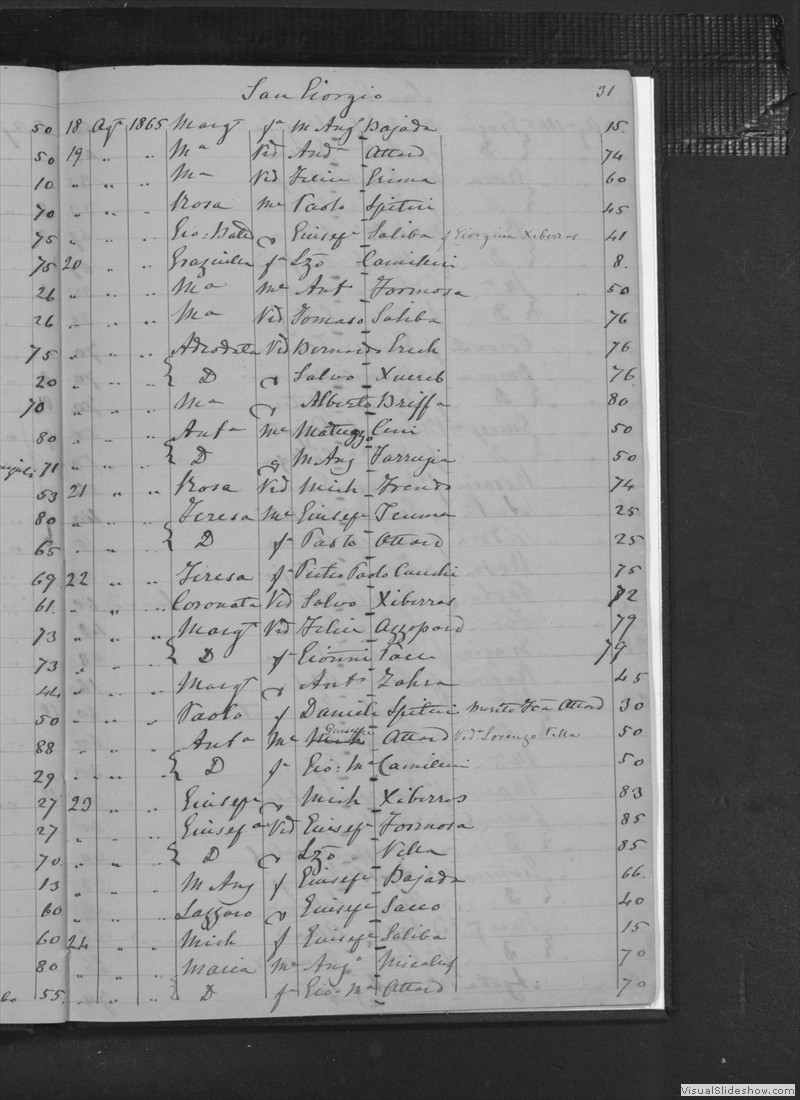 San Giorgio 31
50 18 Agt 1865 Margt fa M Ang Bajada 15.
50 19 " " Ma Vid And Attard 74
10 " " Ma Vid Felice Grima 60
70 " " Rosa Me Paolo Spiteri 45
75 " " Gio: Batt Giusepe Saliba f Giorgina Xiberras 41
75 20 " " Graziella fa Lzo Camilleri 8.
26 " " Ma Me Ant Formosa 50
26 " " Ma Vid Tomaso Saliba 76
75 " " Adeodata Vid Bernardo Grech 76
20 " " { D Salvo Xuereb 76
70 " " Ma Alberto Briffa 80
80 " " Anta Me Matteo Cini 50
71 " " { D M Ang Farrugia 50
53 21 " " Rosa Vid Mich Frendo 74
80 " " Teresa Me Giusepe 25
65 " " { D fa Paolo Attard 25
69 22 " " Teresa fa Pietro Paolo Cauchi 75
61. " " Coronata Vid Salvo Xiberras 72
73 " " Margt Vid Felice Azzopard 79
73 " " { D fa Gionni Pace 79
44 " " Margt Anto Zahra 45
50 " " Paolo f Daniele Spiteri Marito Fca Attard 30
88 " " Anta Me Giuseppe Attard Vid Lorenzo Vella 50
29 " " { D fa Gio: Ma Camilleri 50
27 23 " " Giusepe Mich Xiberras 83
27 " " Giusepa Vid Giusepe Formosa 85
70 " " { D Lzo Vella 85
13 " " M Ang f Giusepe Bajada 66.
60 " " Lazzaro Giusepe Sacco 40
60 24 " " Mich f Giusepe Saliba 15
80 " " Maria Me Ango Micalef 70
55. " " { D fa Gio: Ma Attard 70
VisualSlideshow.com